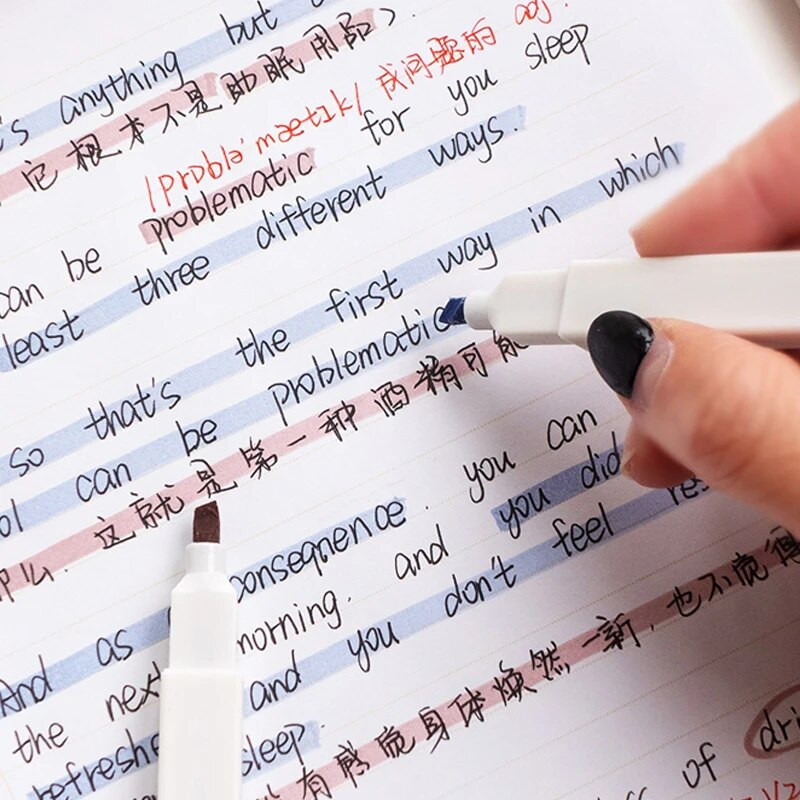 's anything but
它根本不是助眠用品).
/problə'mætɪk/ 成问题的 adj.
can be problematic for you sleep
least three different ways.
so that's the first way in which
can be problematic
这就是第一种酒精可能
那么.
And as consequence. you can
the next morning. and you did
and you don't feel
refreshe sleep.
有感觉身体焕然一新, 也不觉得
of dri